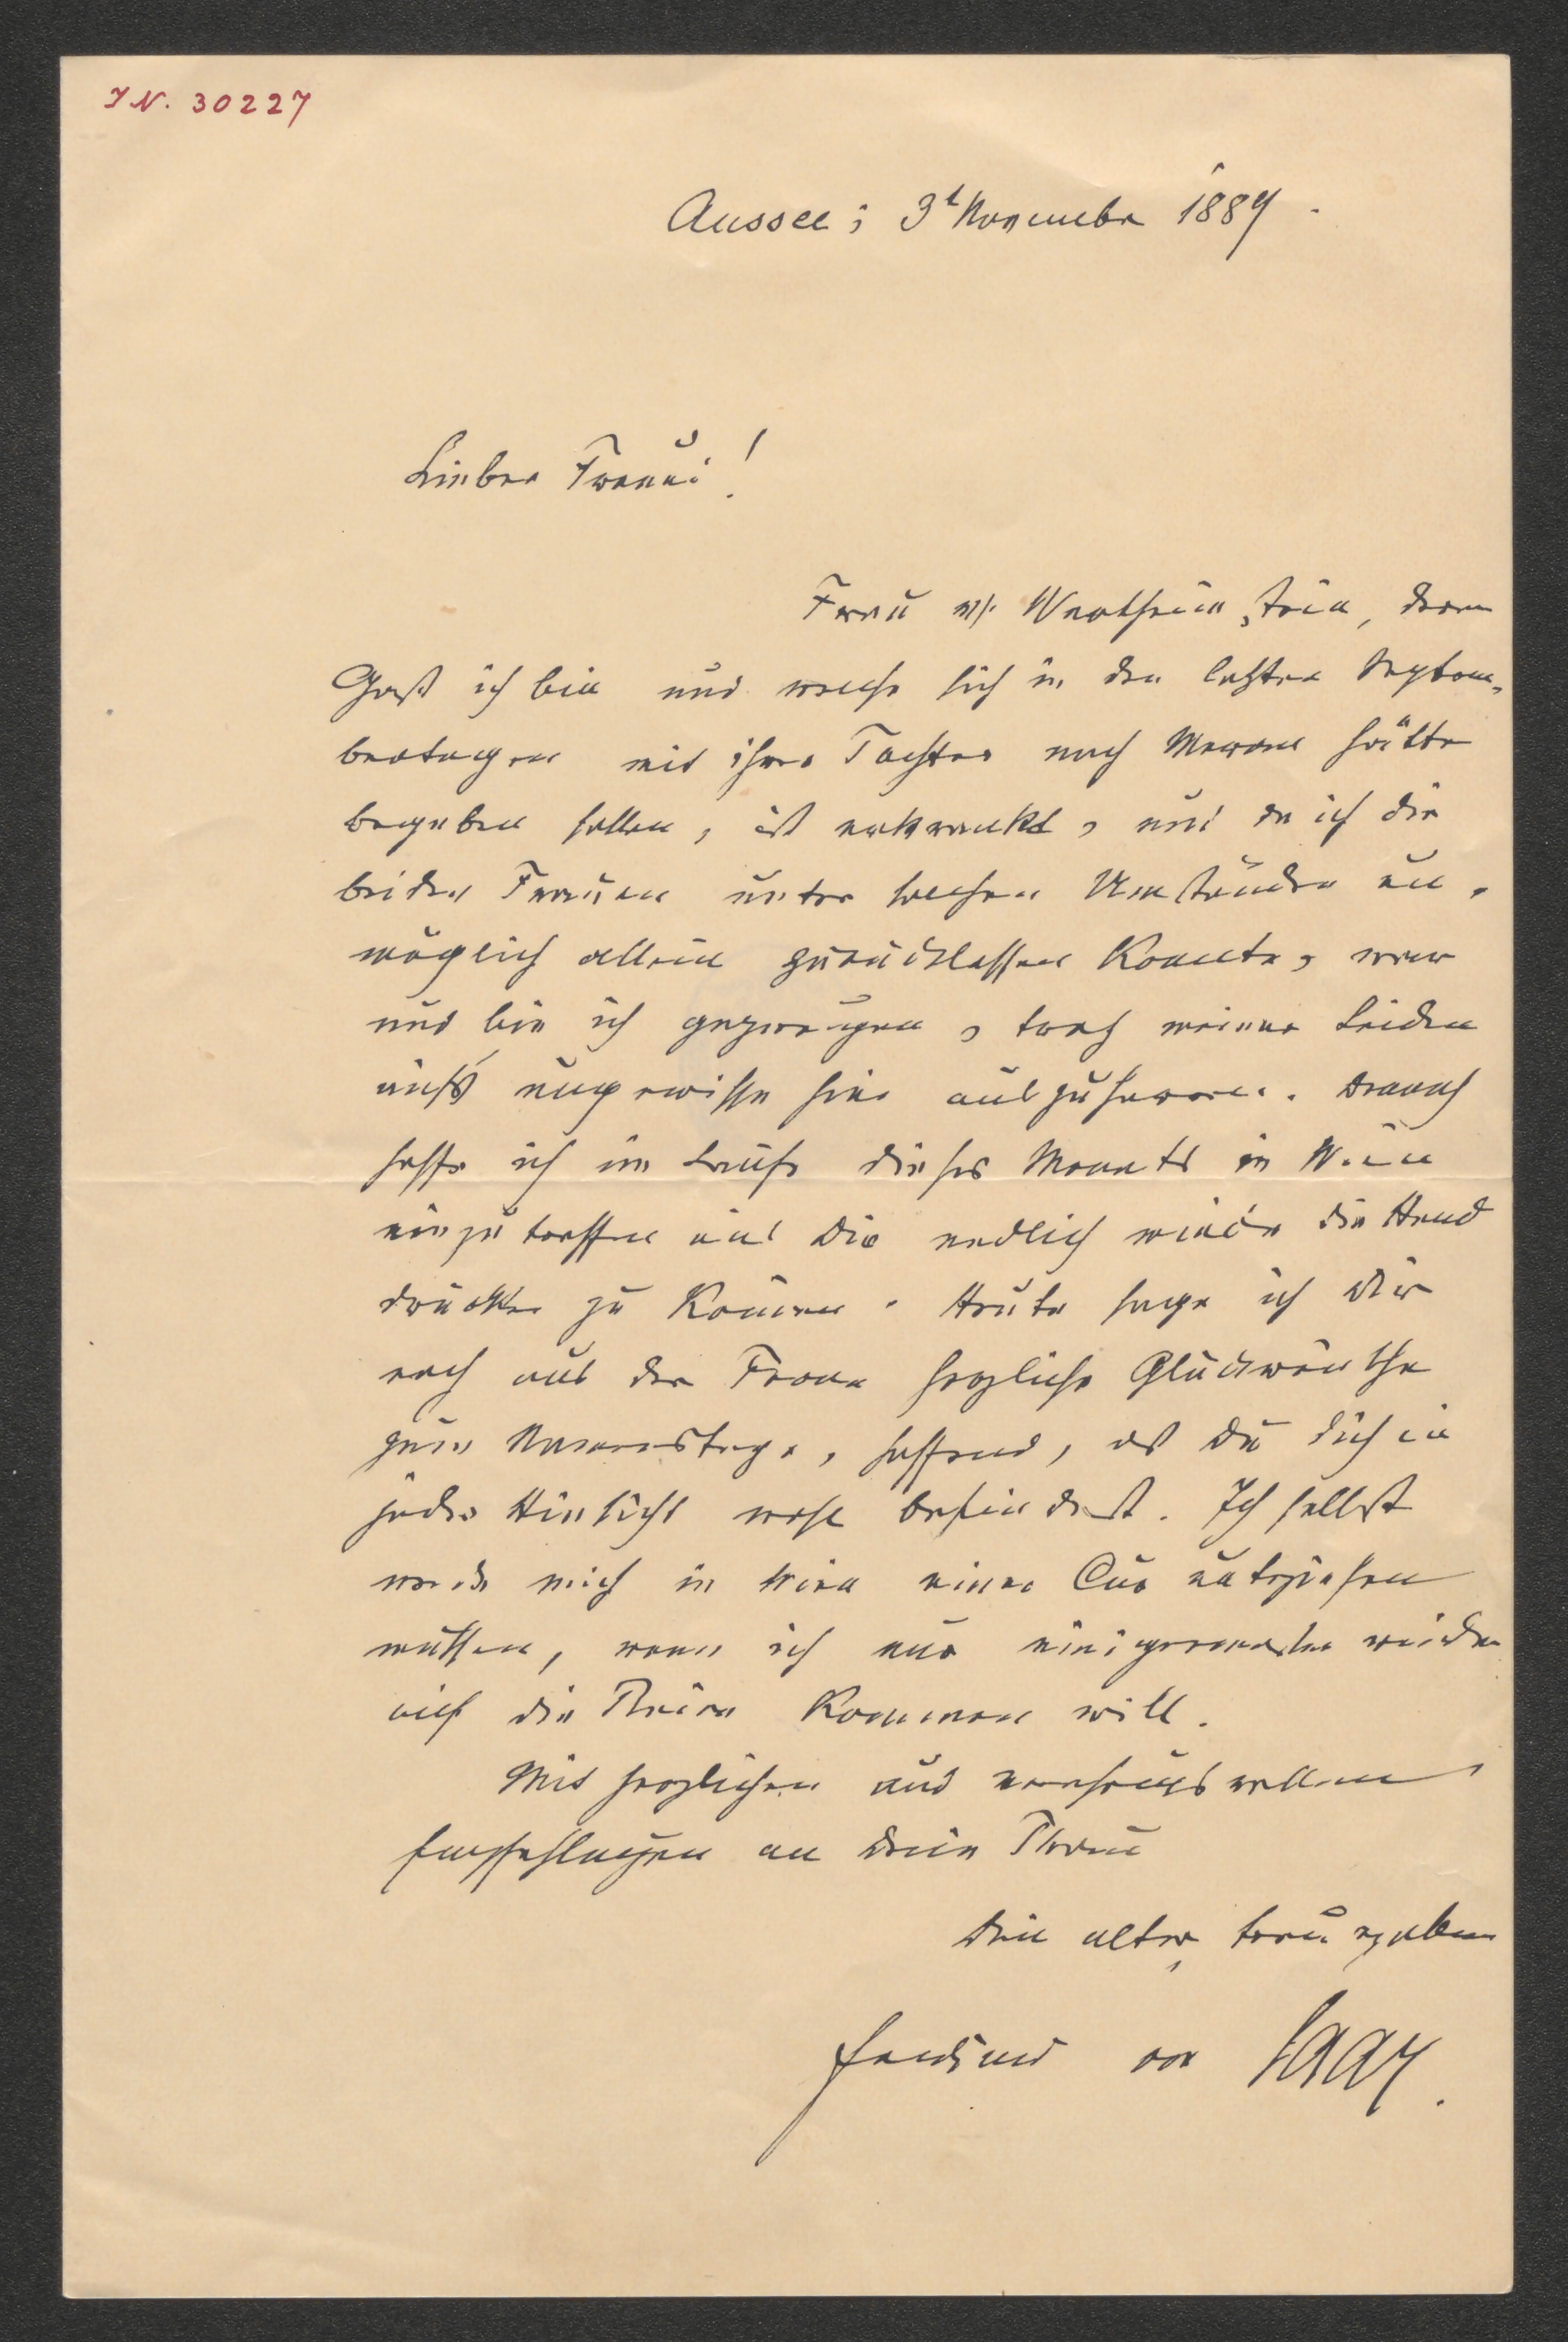 IN. 30227
Aussee; 3t November 1889.
Lieber Freund!
Frau v. Wertheimstein, deren
Gast ich bin und welche sich in den letzten Septem-
bertagen mit ihrer Tochter nach Meran hätte
begeben sollen, ist erkrankt, und da ich die
beiden Frauen unter solchen Umständen un-
möglich allein zurücklassen konnte, war
und bin ich gezwungen, trotz meiner Leiden
aufs ungewisse hier auszuharren. Dennoch
hoffe ich im Laufe dieses Monats in Wien
einzutreffen und Dir endlich wieder die Hand
drücken zu können. Heute sage ich Dir
noch aus der Ferne herzliche Glückwünsche
zum Namenstage, hoffend, daß Du Dich in
jeder Hinsicht wohl befindest. Ich selbst
werde mich in Wien einer Cur unterziehen
müssen, wenn ich nur einigermaßen wieder
auf die Beine kommen will.
Mit herzlichen und verehrungsvollen
Empfehlungen an Deine Frau
Dein alter, treu ergebener
Ferdinand von Saar.